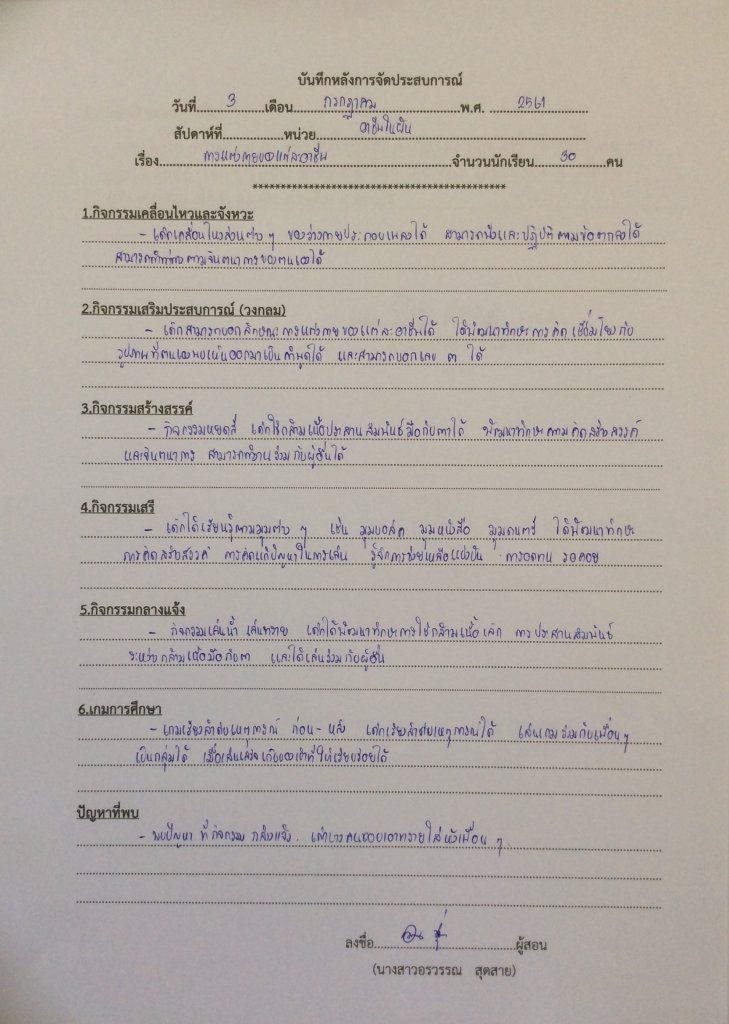 บันทึกหลังการจัดประสบการณ์
วันที่ 3 เดือน กรกฎาคม พ.ศ. 2561
สัปดาห์ที่ หน่วย อาชีพในฝัน
เรื่อง การแต่งกายของแต่ละอาชีพ จำนวนนักเรียน 30 คน
********************************************
1.กิจกรรมเคลื่อนไหวและจังหวะ
- เด็กเคลื่อนไหวส่วนต่าง ๆ ของร่างกายประกอบเพลงได้ สามารถฟังและปฏิบัติตามข้อตกลงได้
สามารถทำท่าทางตามจินตนาการของตนเองได้
2.กิจกรรมเสริมประสบการณ์ (วงกลม)
- เด็กสามารถบอกลักษณะการแต่งกายของแต่ละอาชีพได้ ได้พัฒนาทักษะการคิดเชื่อมโยงกับ
รูปภาพที่ตนเองพบเห็นออกมาเป็นคำพูดได้ และสามารถบอกเลข ๓ ได้
3.กิจกรรมสร้างสรรค์
- กิจกรรมหยดสี เด็กใช้กล้ามเนื้อประสานสัมพันธ์มือกับตาได้ พัฒนาทักษะความคิดสร้างสรรค์
และจินตนาการ สามารถทำงานร่วมกับผู้อื่นได้
4.กิจกรรมเสรี
- เด็กได้เรียนรู้ตามมุมต่าง ๆ เช่น มุมบล็อค มุมหนังสือ มุมดนตรี ได้พัฒนาทักษะ
การคิดสร้างสรรค์ การคิดแก้ปัญหาในการเล่น รู้จักการช่วยเหลือแบ่งปัน การอดทน รอคอย
5.กิจกรรมกลางแจ้ง
- กิจกรรมเล่นน้ำ เล่นทราย เด็กได้พัฒนาทักษะการใช้กล้ามเนื้อเล็ก การประสานสัมพันธ์
ระหว่างกล้ามเนื้อมือกับตา และได้เล่นร่วมกับผู้อื่น
6.เกมการศึกษา
- เกมเรียงลำดับเหตุการณ์ ก่อน - หลัง เด็กเรียงลำดับเหตุการณ์ได้ เล่นเกมร่วมกับเพื่อนๆ
เป็นกลุ่มได้ เมื่อเล่นเสร็จเก็บของเข้าที่ให้เรียบร้อยได้
ปัญหาที่พบ
- พบปัญหา ที่กิจกรรมกลางแจ้ง เด็กบางคนชอบเอาทรายใส่หัวเพื่อน ๆ
ลงชื่อ ผู้สอน
(นางสาวอรวรรณ สุดสาย)